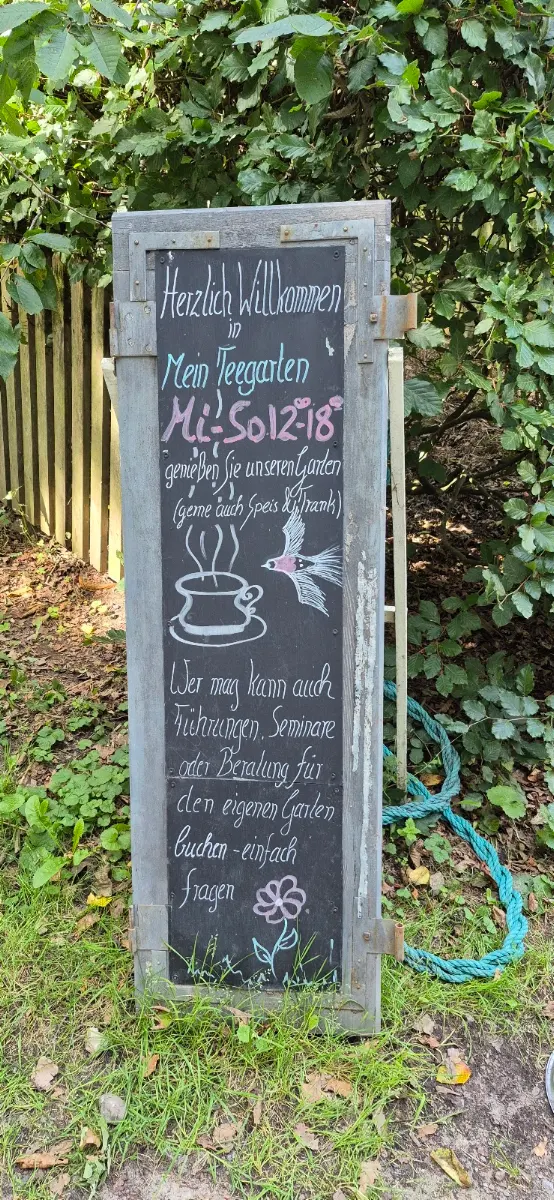 Herzlich Willkommen
in
Mein Teegarten
Mi-So 12⁰⁰-18⁰⁰
genießen Sie unseren Garten
(gerne auch Speis & Trank)
Wer mag kann auch
Führungen, Seminare
oder Beratung für
den eigenen Garten
buchen - einfach
fragen